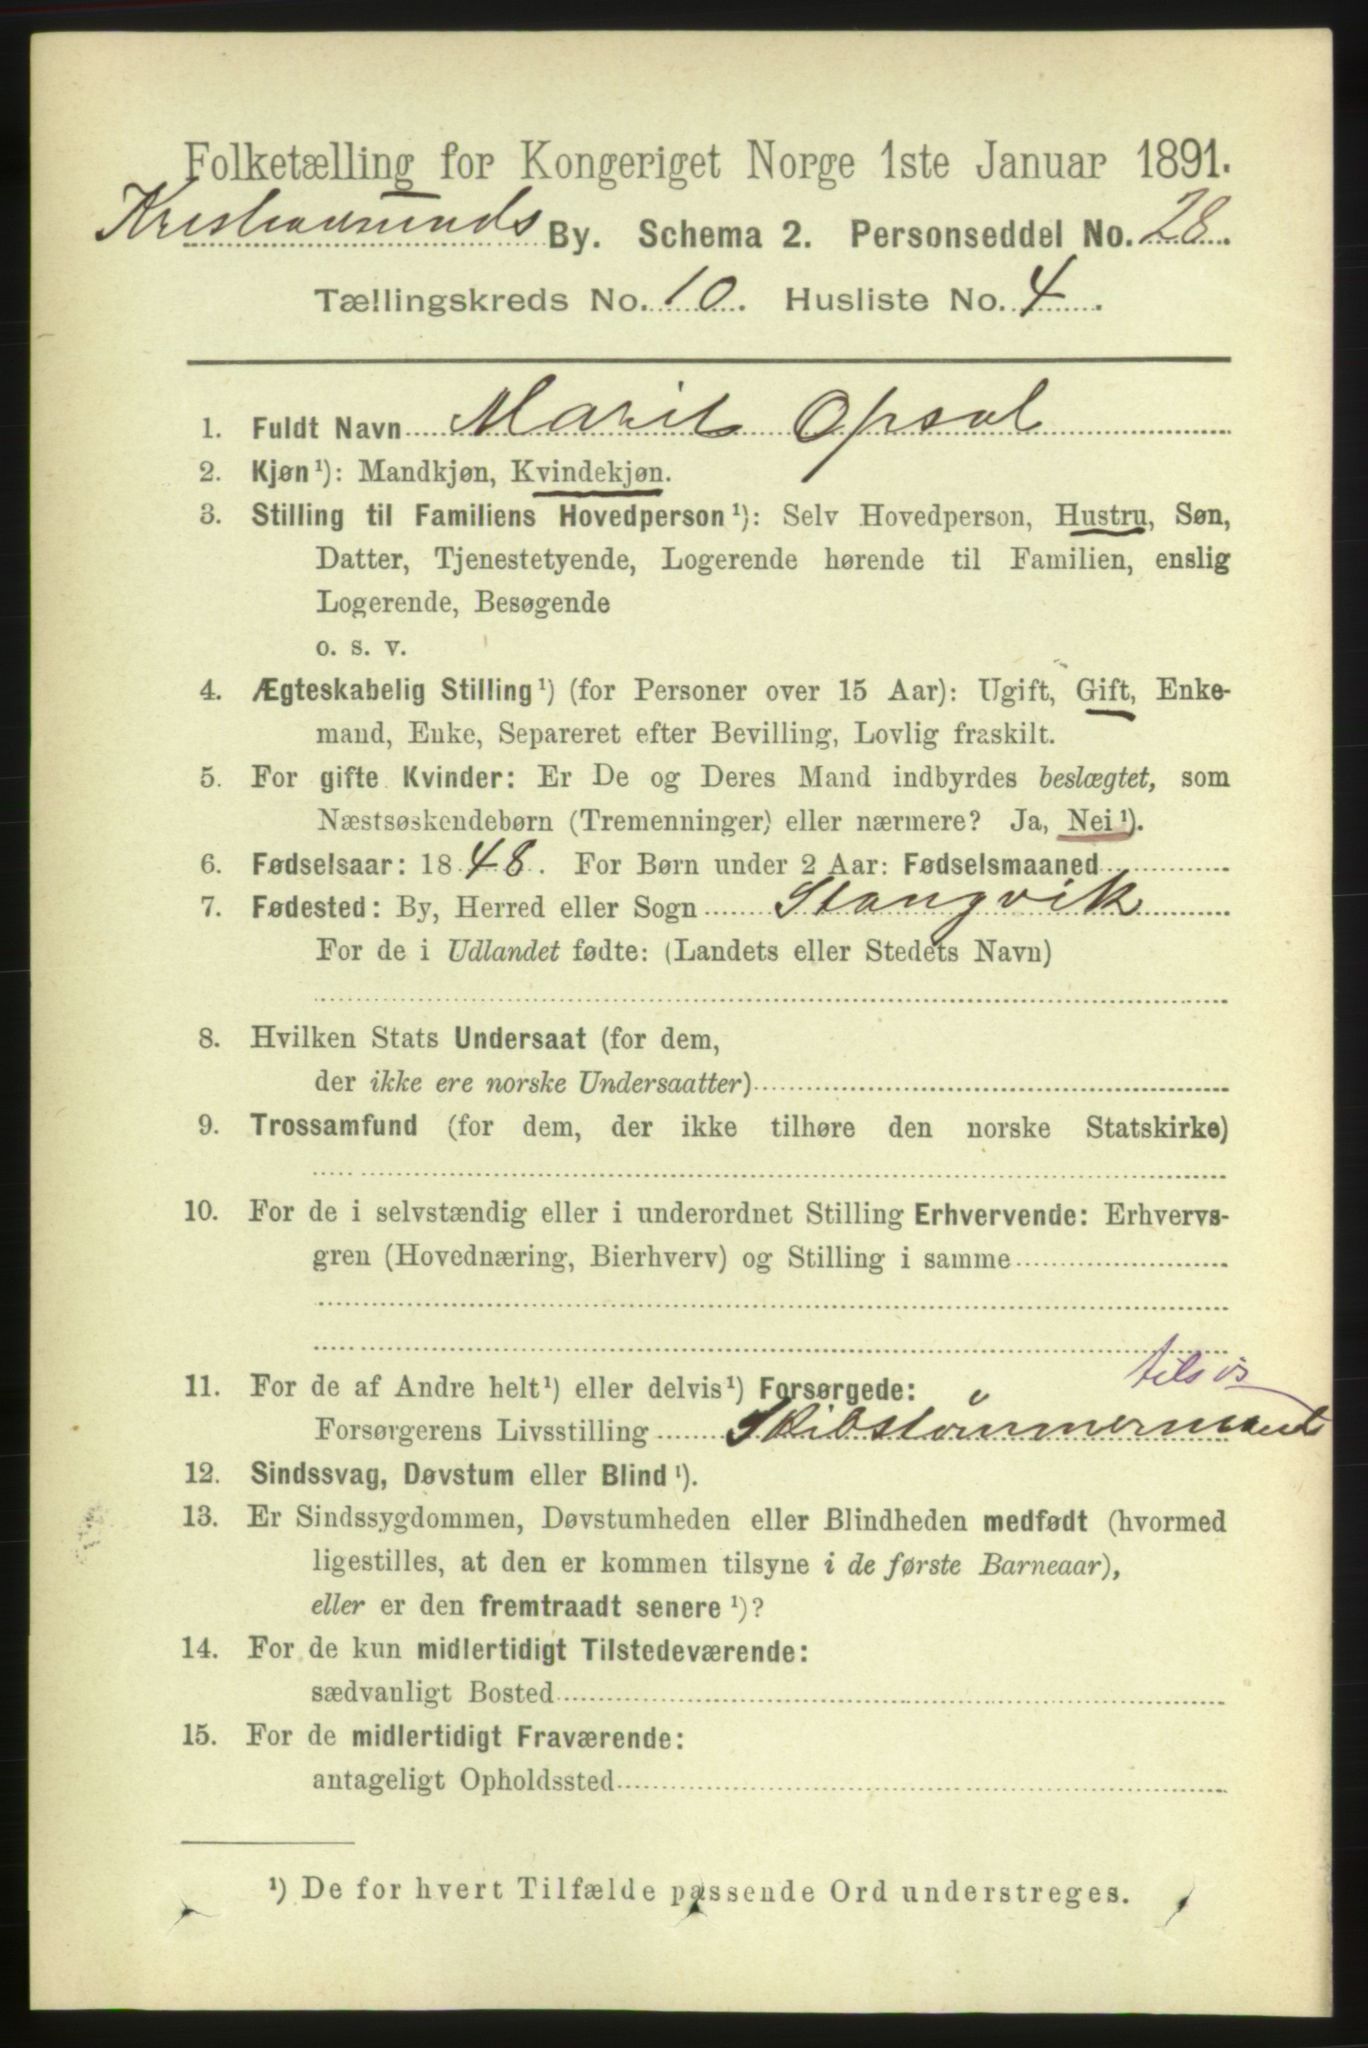 Folketælling for Kongeriget Norge 1ste Januar 1891.
Kristiansunds By. Schema 2. Personseddel No. 28.
Tællingskreds No. 10. Husliste No. 4.
1. Fuldt Navn Marit Opsal
2. Kjøn ¹): Mandkjøn, Kvindekjøn.
3. Stilling til Familiens Hovedperson ¹): Selv Hovedperson, Hustru, Søn,
Datter, Tjenestetyende, Logerende hørende til Familien, enslig
Logerende, Besøgende
o. s. v.
4. Ægteskabelig Stilling ¹) (for Personer over 15 Aar): Ugift, Gift, Enke-
mand, Enke, Separeret efter Bevilling, Lovlig fraskilt.
5. For gifte Kvinder: Er De og Deres Mand indbyrdes beslægtet, som
Næstsøskendebørn (Tremenninger) eller nærmere? Ja, Nei ¹).
6. Fødselsaar: 1848. For Børn under 2 Aar: Fødselsmaaned
7. Fødested: By, Herred eller Sogn Stangvik
For de i Udlandet fødte: (Landets eller Stedets Navn)
8. Hvilken Stats Undersaat (for dem,
der ikke ere norske Undersaatter)
9. Trossamfund (for dem, der ikke tilhøre den norske Statskirke)
10. For de i selvstændig eller i underordnet Stilling Erhvervende: Erhvervs-
gren (Hovednæring, Bierhverv) og Stilling i samme
11. For de af Andre helt ¹) eller delvis ¹) Forsørgede:
Forsørgerens Livsstilling Skibstømmermand
12. Sindssvag, Døvstum eller Blind ¹).
13. Er Sindssygdommen, Døvstumheden eller Blindheden medfødt (hvormed
ligestilles, at den er kommen tilsyne i de første Barneaar),
eller er den fremtraadt senere ¹)?
14. For de kun midlertidigt Tilstedeværende:
sædvanligt Bosted
15. For de midlertidigt Fraværende:
antageligt Opholdssted
¹) De for hvert Tilfælde passende Ord understreges.